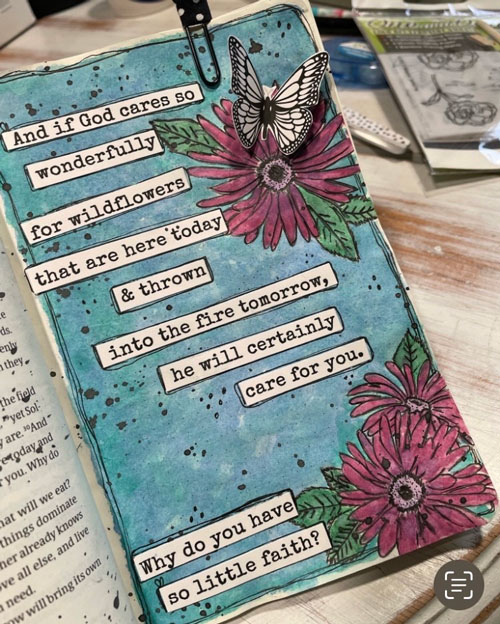 And if God cares so
wonderfully
for wildflowers
that are here today
& thrown
into the fire tomorrow,
he will certainly
care for you.
Why do you have
so little faith?
the field
yet Sol-
y are. 30And
e today and
you. Why do
hat will we eat?
things dominate
her already knows
ve all else, and live
need.
ow will bring its own